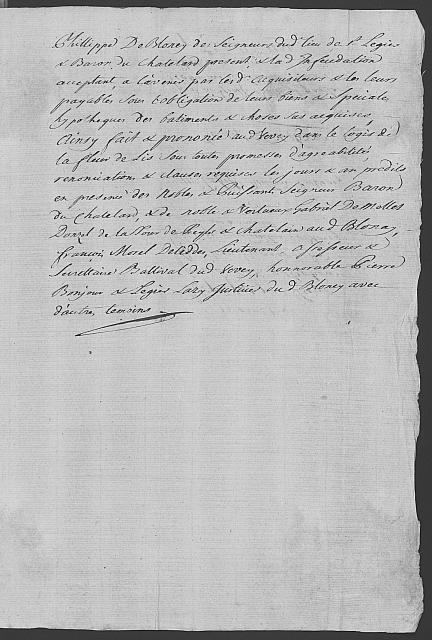 Phillippe De Bloney des Seigneurs dud. lieu de St Legier
& Baron du Chatelard present & lad Infeudation
acceptant, a l'avenir par lesd. acquisiteurs & les leurs
payables sous l'obligation de leurs biens & speciale
hypotheques des batiments & choses sus acquises,
Ainsy fait & prononcé aud Vevey dans le Logis de
la fleur de Lis sous toutes promesses d'agreabilité
renonciations & clauses requises les jours & an predits
en presence des Nobles & Puissant Seigneur Baron
du Chatelard, & de noble & Vertueux Gabriel De
Donzel de la Tour de & Chatelain aud Blonay
François Morel Lieutenant, assesseur &
Secrettaire Ballival dud Vevey, honnorable Pierre
Bonjour & Legier Justicier du d Bloney avec
d'autre, temoins